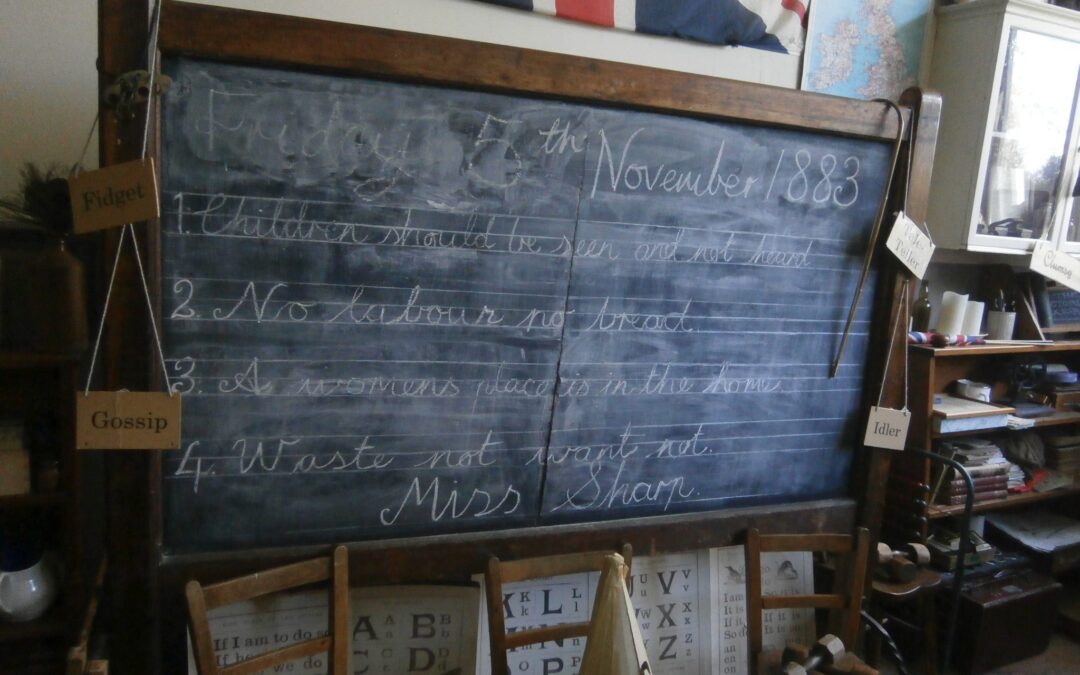 Friday 5th November 1883
1. Children should be seen and not heard
2. No labour no bread.
3. A womens place is in the home.
4. Waste not want not.
Miss Sharp.
Fidget
Gossip
Teller
Idler
Clumsy
If I am to do so
we do
A B
C D
K k L l
N
P
U u V v
X x
Z z
If it is